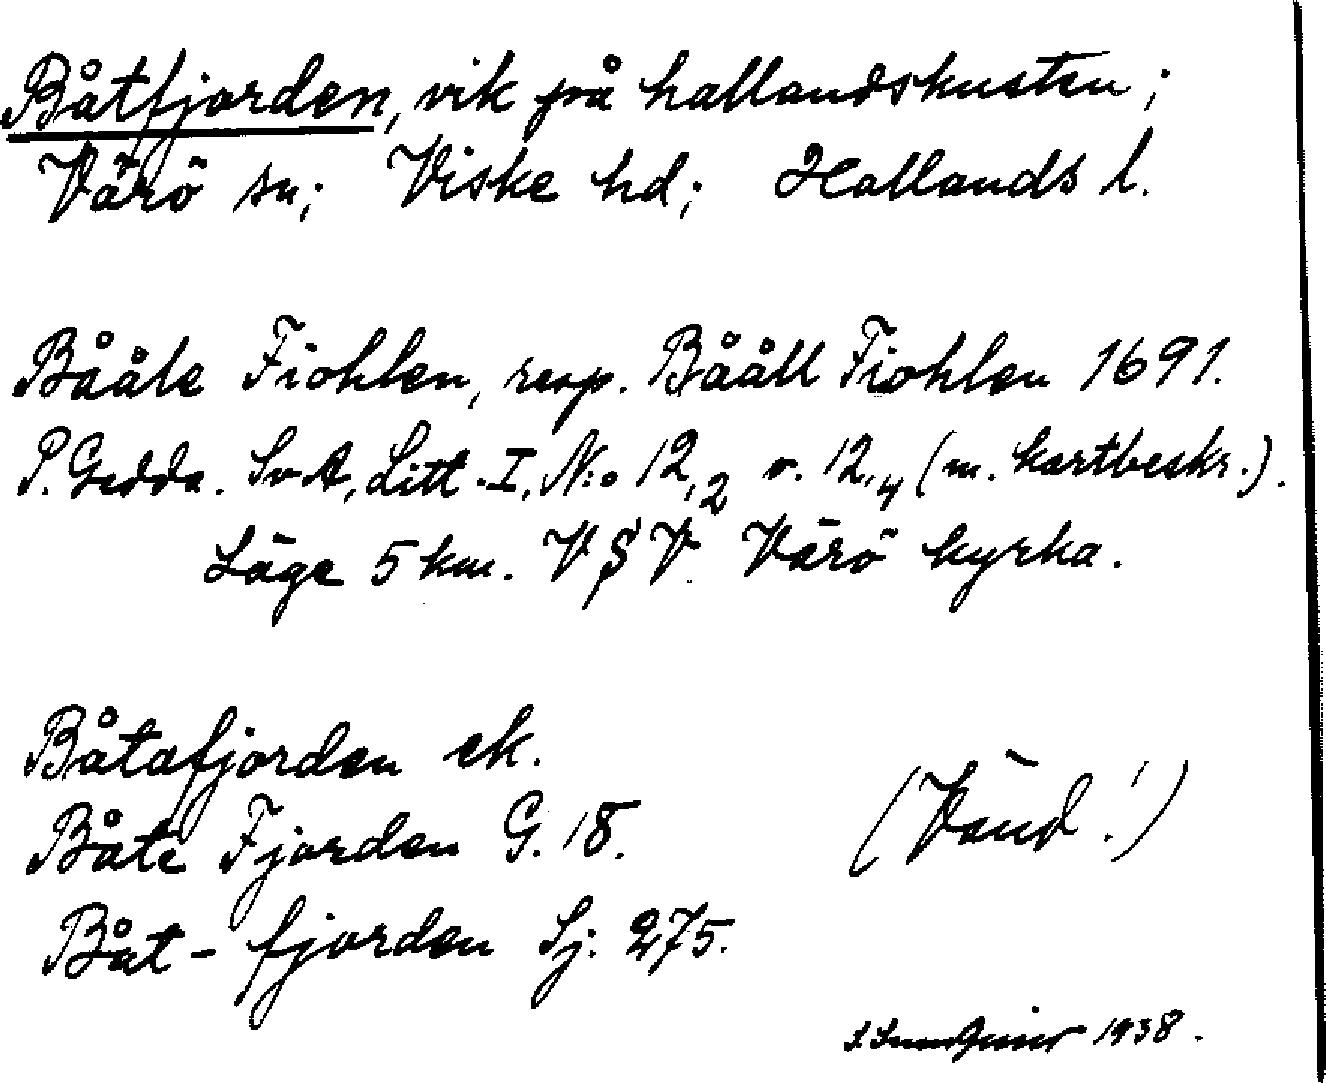 Båtfjorden, vik på hallandskusten;
Värö sn; Viske hd; Hallands l.
Bååle Fiohlen, resp. Bååll Fiohlen 1691.
P. Gedda. SvA, Litt. I, N:o 12,2 o. 12,4 (m. kartbeskr.).
Läge 5 km. VSV Värö kyrka.
Båtafjorden ek.
Båte Fjorden G. 18.
(Vänd!)
Båt-fjorden Sj. 275.
1938.